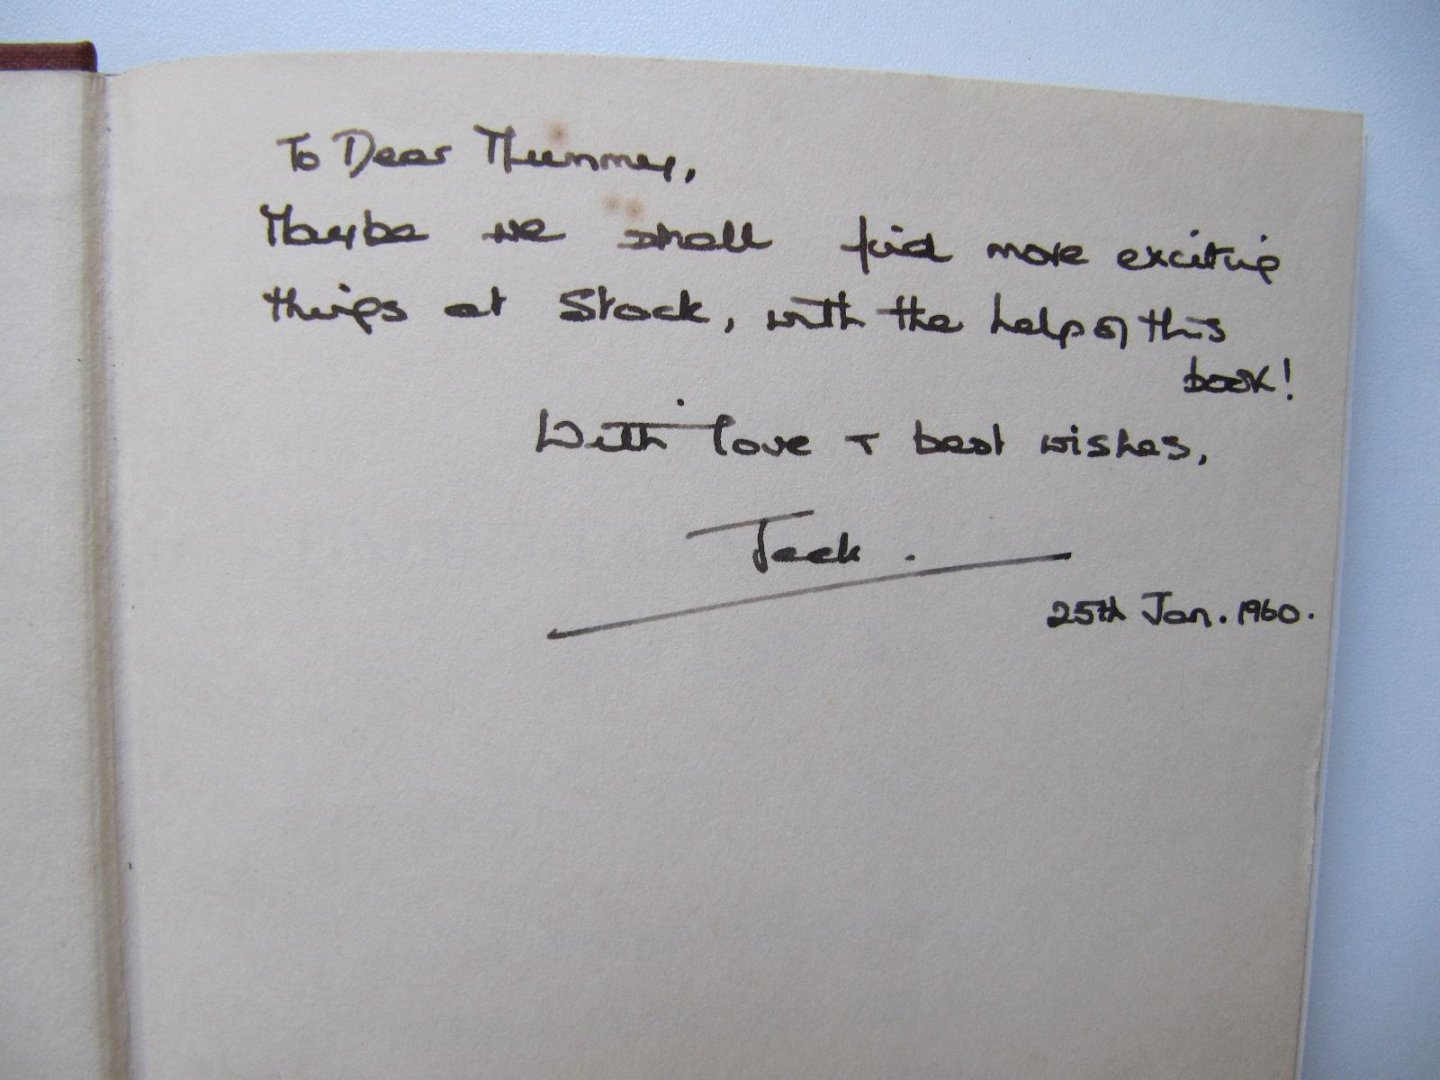 To Dear Mummy,
Maybe we shall find more exciting
things at Stock, with the help of this
book!
With love + best wishes,
Jack.
25th Jan. 1960.